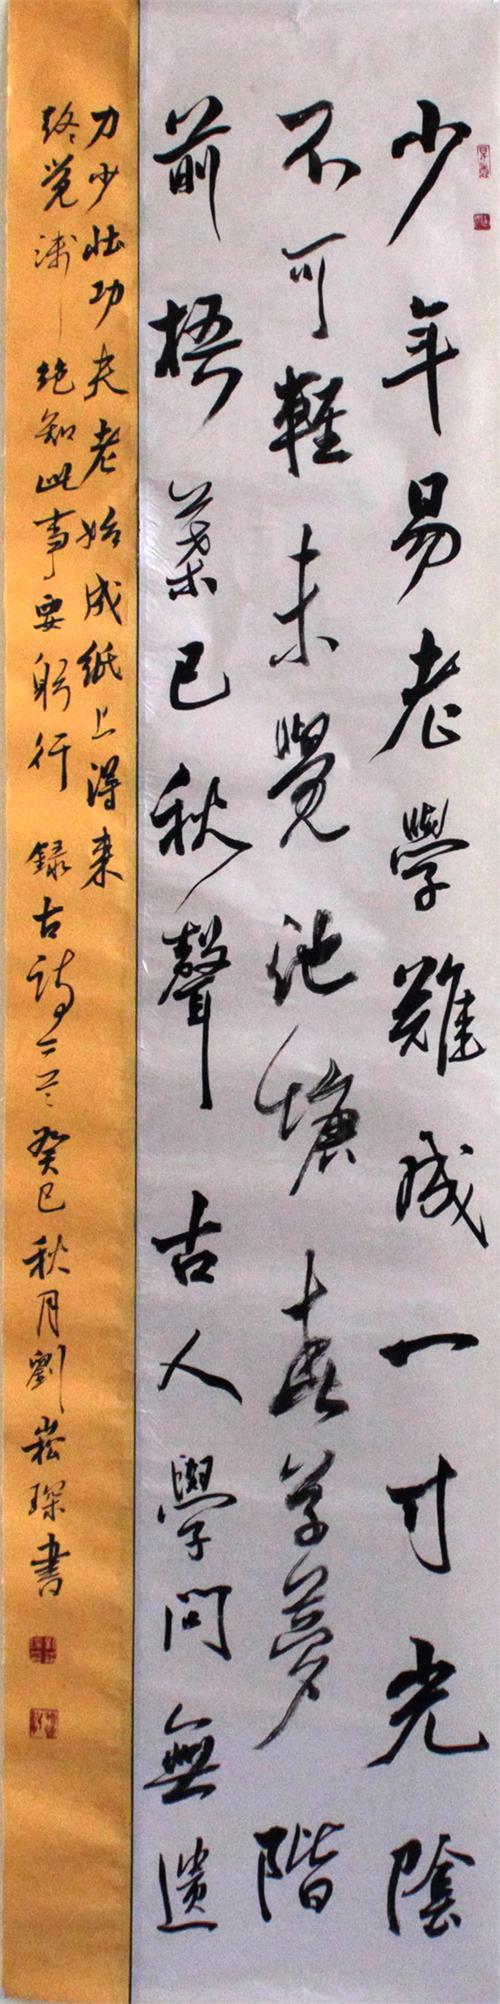 少年易老學難成一寸光陰
不可輕未覺池塘春草夢階
前梧葉已秋聲古人學問無遺
力少壯功夫老始成紙上得来
終覺淺絕知此事要躬行錄古詩二首癸巳秋月劉崧琛書